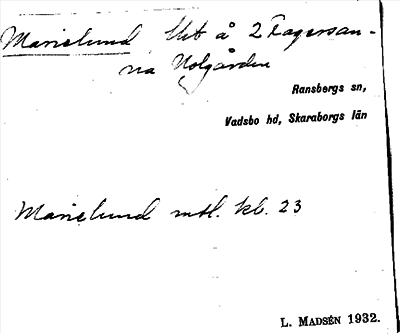 Marielund Utt å 2 Fagersan-
na Nolgården
Ransbergs sn,
Vadsbo hd, Skaraborgs län
Marielund mtl. kb. 23
L. MADSÉN 1932.